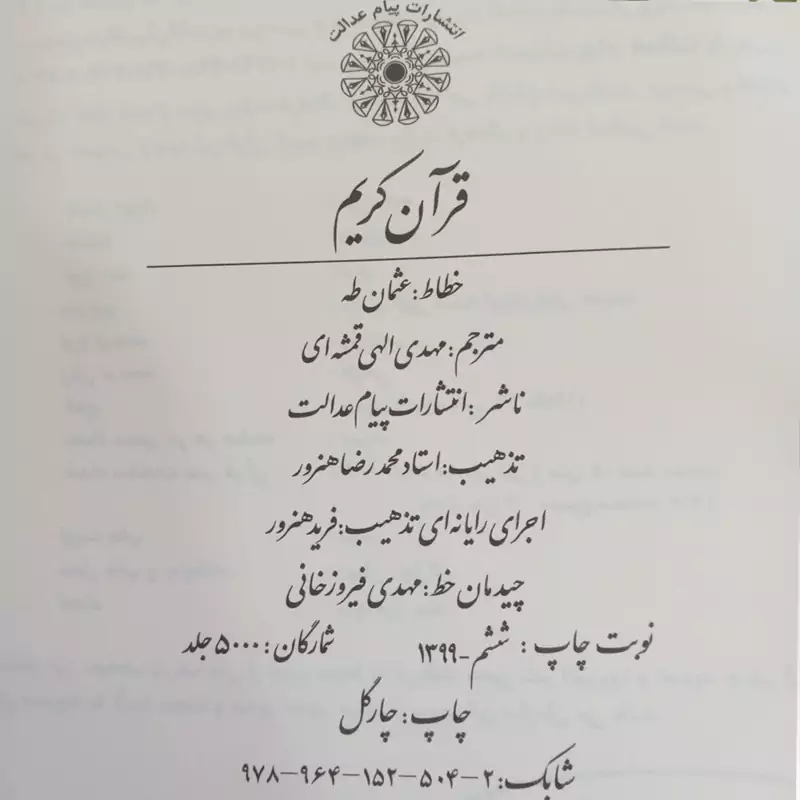 انتشارات پیام عدالت
قرآن کریم
خطاط: عثمان طه
مترجم: مهدی الهی قمشه ای
ناشر: انتشارات پیام عدالت
تذهیب: استاد محمد رضا هنرور
اجرای رایانه ای تذهیب: فرید هنرور
چیدمان خط: مهدی فیروزخانی
نوبت چاپ: ششم -۱۳۹۹ شمارگان: ۵۰۰۰ جلد
چاپ: چارگل
شابک: ۲-۵۰۴-۱۵۲-۹۶۴-۹۷۸